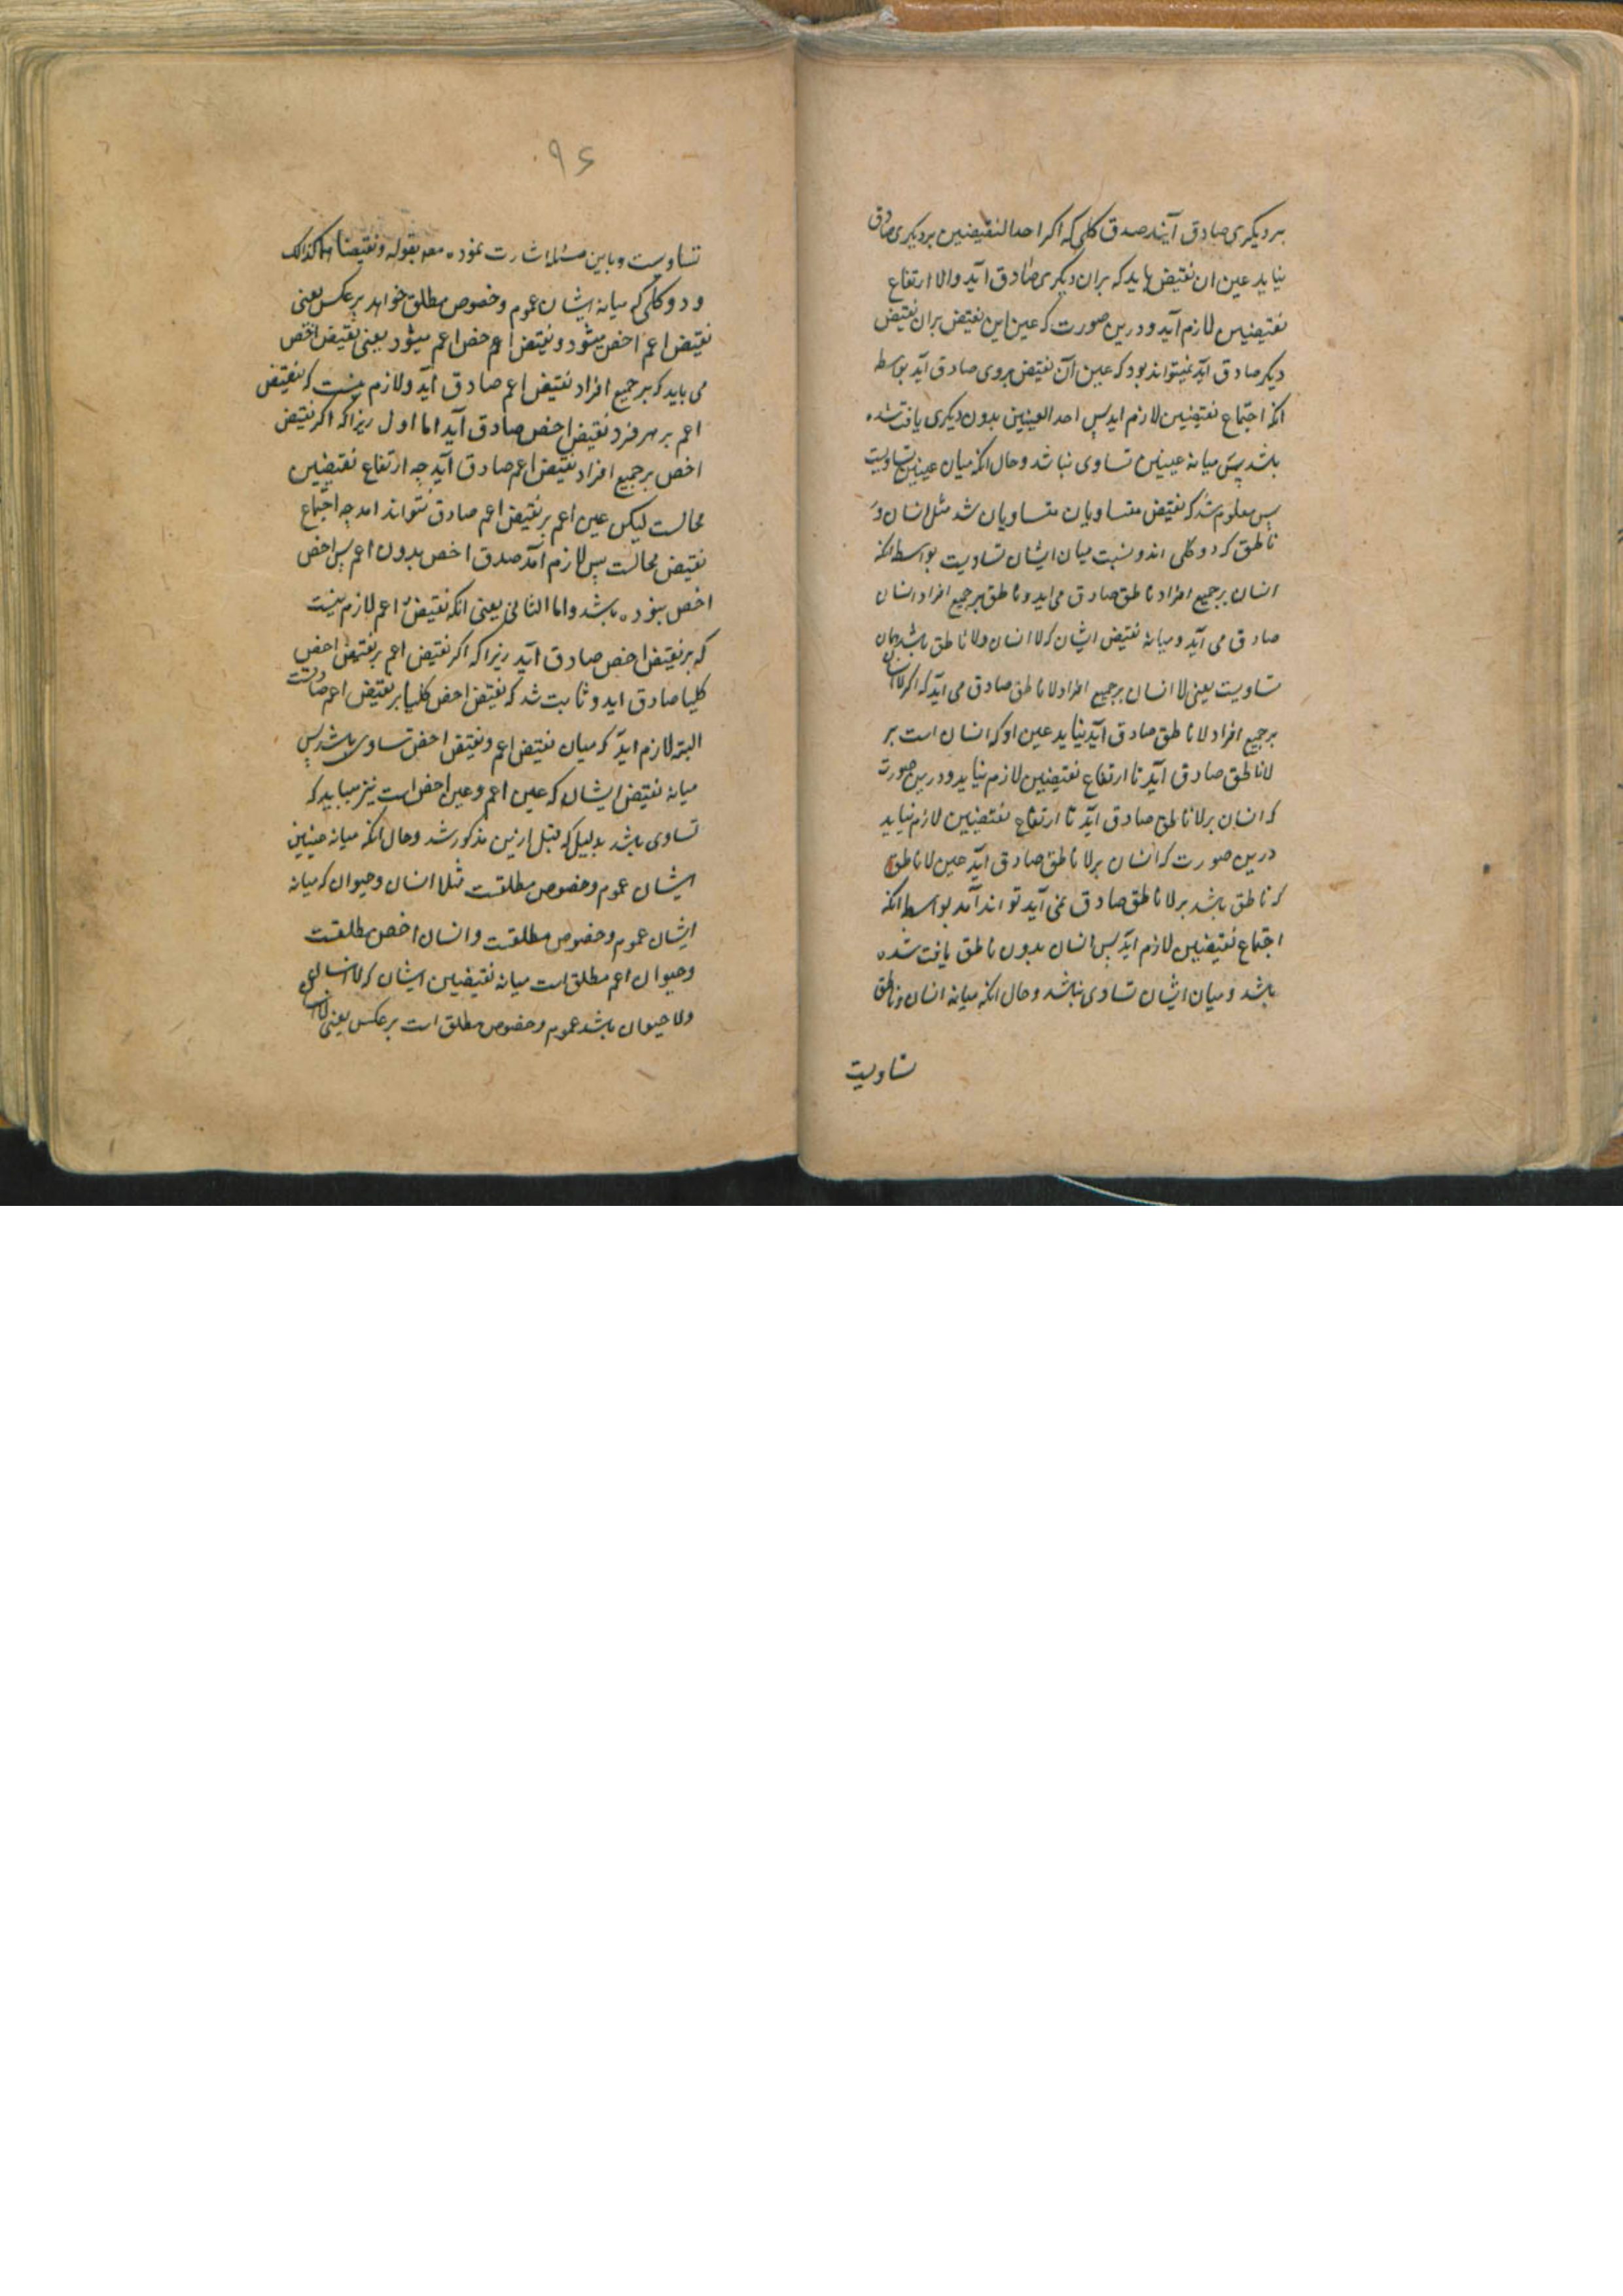 بر دیکری صادق آیند صدق کلی که اکر احد النقیضین بر دیکری صادق
نیاید عین ان نقیض باید که بران دیکری صادق آید والا ارتفاع
نقیضین لازم آید و درین صورت که عین این نقیض بران نقیض
دیکر صادق آید نمیتواند بود که عین آن نقیض بروی صادق آید بواسطه
انکه اجتماع نقیضین لازم اید پس احد العینین بدون دیکری یافت شده
باشد پس میانه عینین تساوی نباشد وحال انکه میان عینین تساویست
پس معلوم شد که نقیض متساویان متساویان شد مثل انسان و
ناطق که دو کلی اند و نسبت میان ایشان تساویست بواسطه انکه
انسان بر جمیع افراد ناطق صادق می اید و ناطق بر جمیع افراد انسان
صادق می آید و میانه نقیض ایشان که لا انسان ولا ناطق باشد همان
تساویست یعنی لا انسان بر جمیع افراد لا ناطق صادق می آید که اکر لا انسان
بر جمیع افراد لا ناطق صادق آید نیاید عین او که انسان است بر
لا ناطق صادق آید تا ارتفاع نقیضین لازم نیاید و درین صورت
که انسان بر لا ناطق صادق آید تا ارتفاع نقیضین لازم نیاید
درین صورت که انسان بر لا ناطق صادق آید عین لا ناطق
که ناطق باشد بر لا ناطق صادق نمی آید تواند آمد بواسطه انکه
اجتماع نقیضین لازم اید پس انسان بدون ناطق یافت شده
باشد و میان ایشان تساوی نباشد وحال انکه میانه انسان و ناطق
تساویست
۹۶
تساویست و باین مسئله اشارت نموده مصه بقوله و نقیضاهما کذلک
و دو کلی که میانه ایشان عموم و خصوص مطلق خواهد بر عکس یعنی
نقیض اعم اخص میشود و نقیض اعم خص اعم میشود یعنی نقیض اخص
می باید که بر جمیع افراد نقیض اعم صادق آید و لازم نیست که نقیض
اعم بر هر فرد نقیض اخص صادق آید اما اول زیرا که اکر نقیض
اخص بر جمیع افراد نقیض اعم صادق آید چه ارتفاع نقیضین
محالست لیکن عین اعم بر نقیض اعم صادق نتواند امد چه اجتماع
نقیض محالست پس لازم آمد صدق اخص بدون اعم پس اخص
اخص نبوده باشد واما الثانی یعنی انکه نقیض اعم لازم نیست
که بر نقیض اخص صادق آید زیرا که اکر نقیض اعم بر نقیض اخص
کلیا صادق اید و ثابت شد که نقیض اخص کلیا بر نقیض اعم صادقست
البته لازم اید که میان نقیض اعم و نقیض اخص تساوی باشد پس
میانه نقیض ایشان که عین اعم و عین اخص است نیز میباید که
تساوی باشد بدلیل که قبل ازین مذکور شد وحال انکه میانه عینین
ایشان عموم و خصوص مطلقست مثلا انسان و حیوان که میانه
ایشان عموم و خصوص مطلقست و انسان اخص مطلقست
و حیوان اعم مطلق است میانه نقیضین ایشان که لا انسان
ولا حیوان باشد عموم و خصوص مطلق است بر عکس یعنی لا انسان